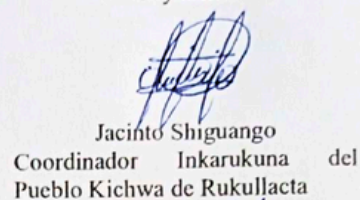 Jacinto Shiguango
Coordinador Inkarukuna del
Pueblo Kichwa de Rukullacta